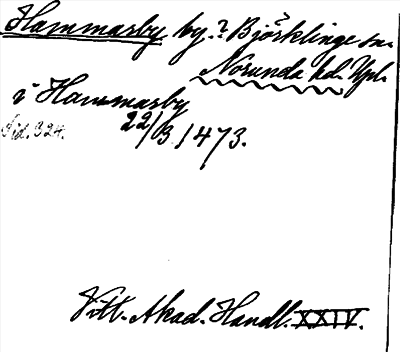 Hammarby by.? Björklinge sn.
Norunda hd. Upl.
i Hammarby
Sid. 324. 22/3 1473.
Vitt. Akad. Handl. XXIV.